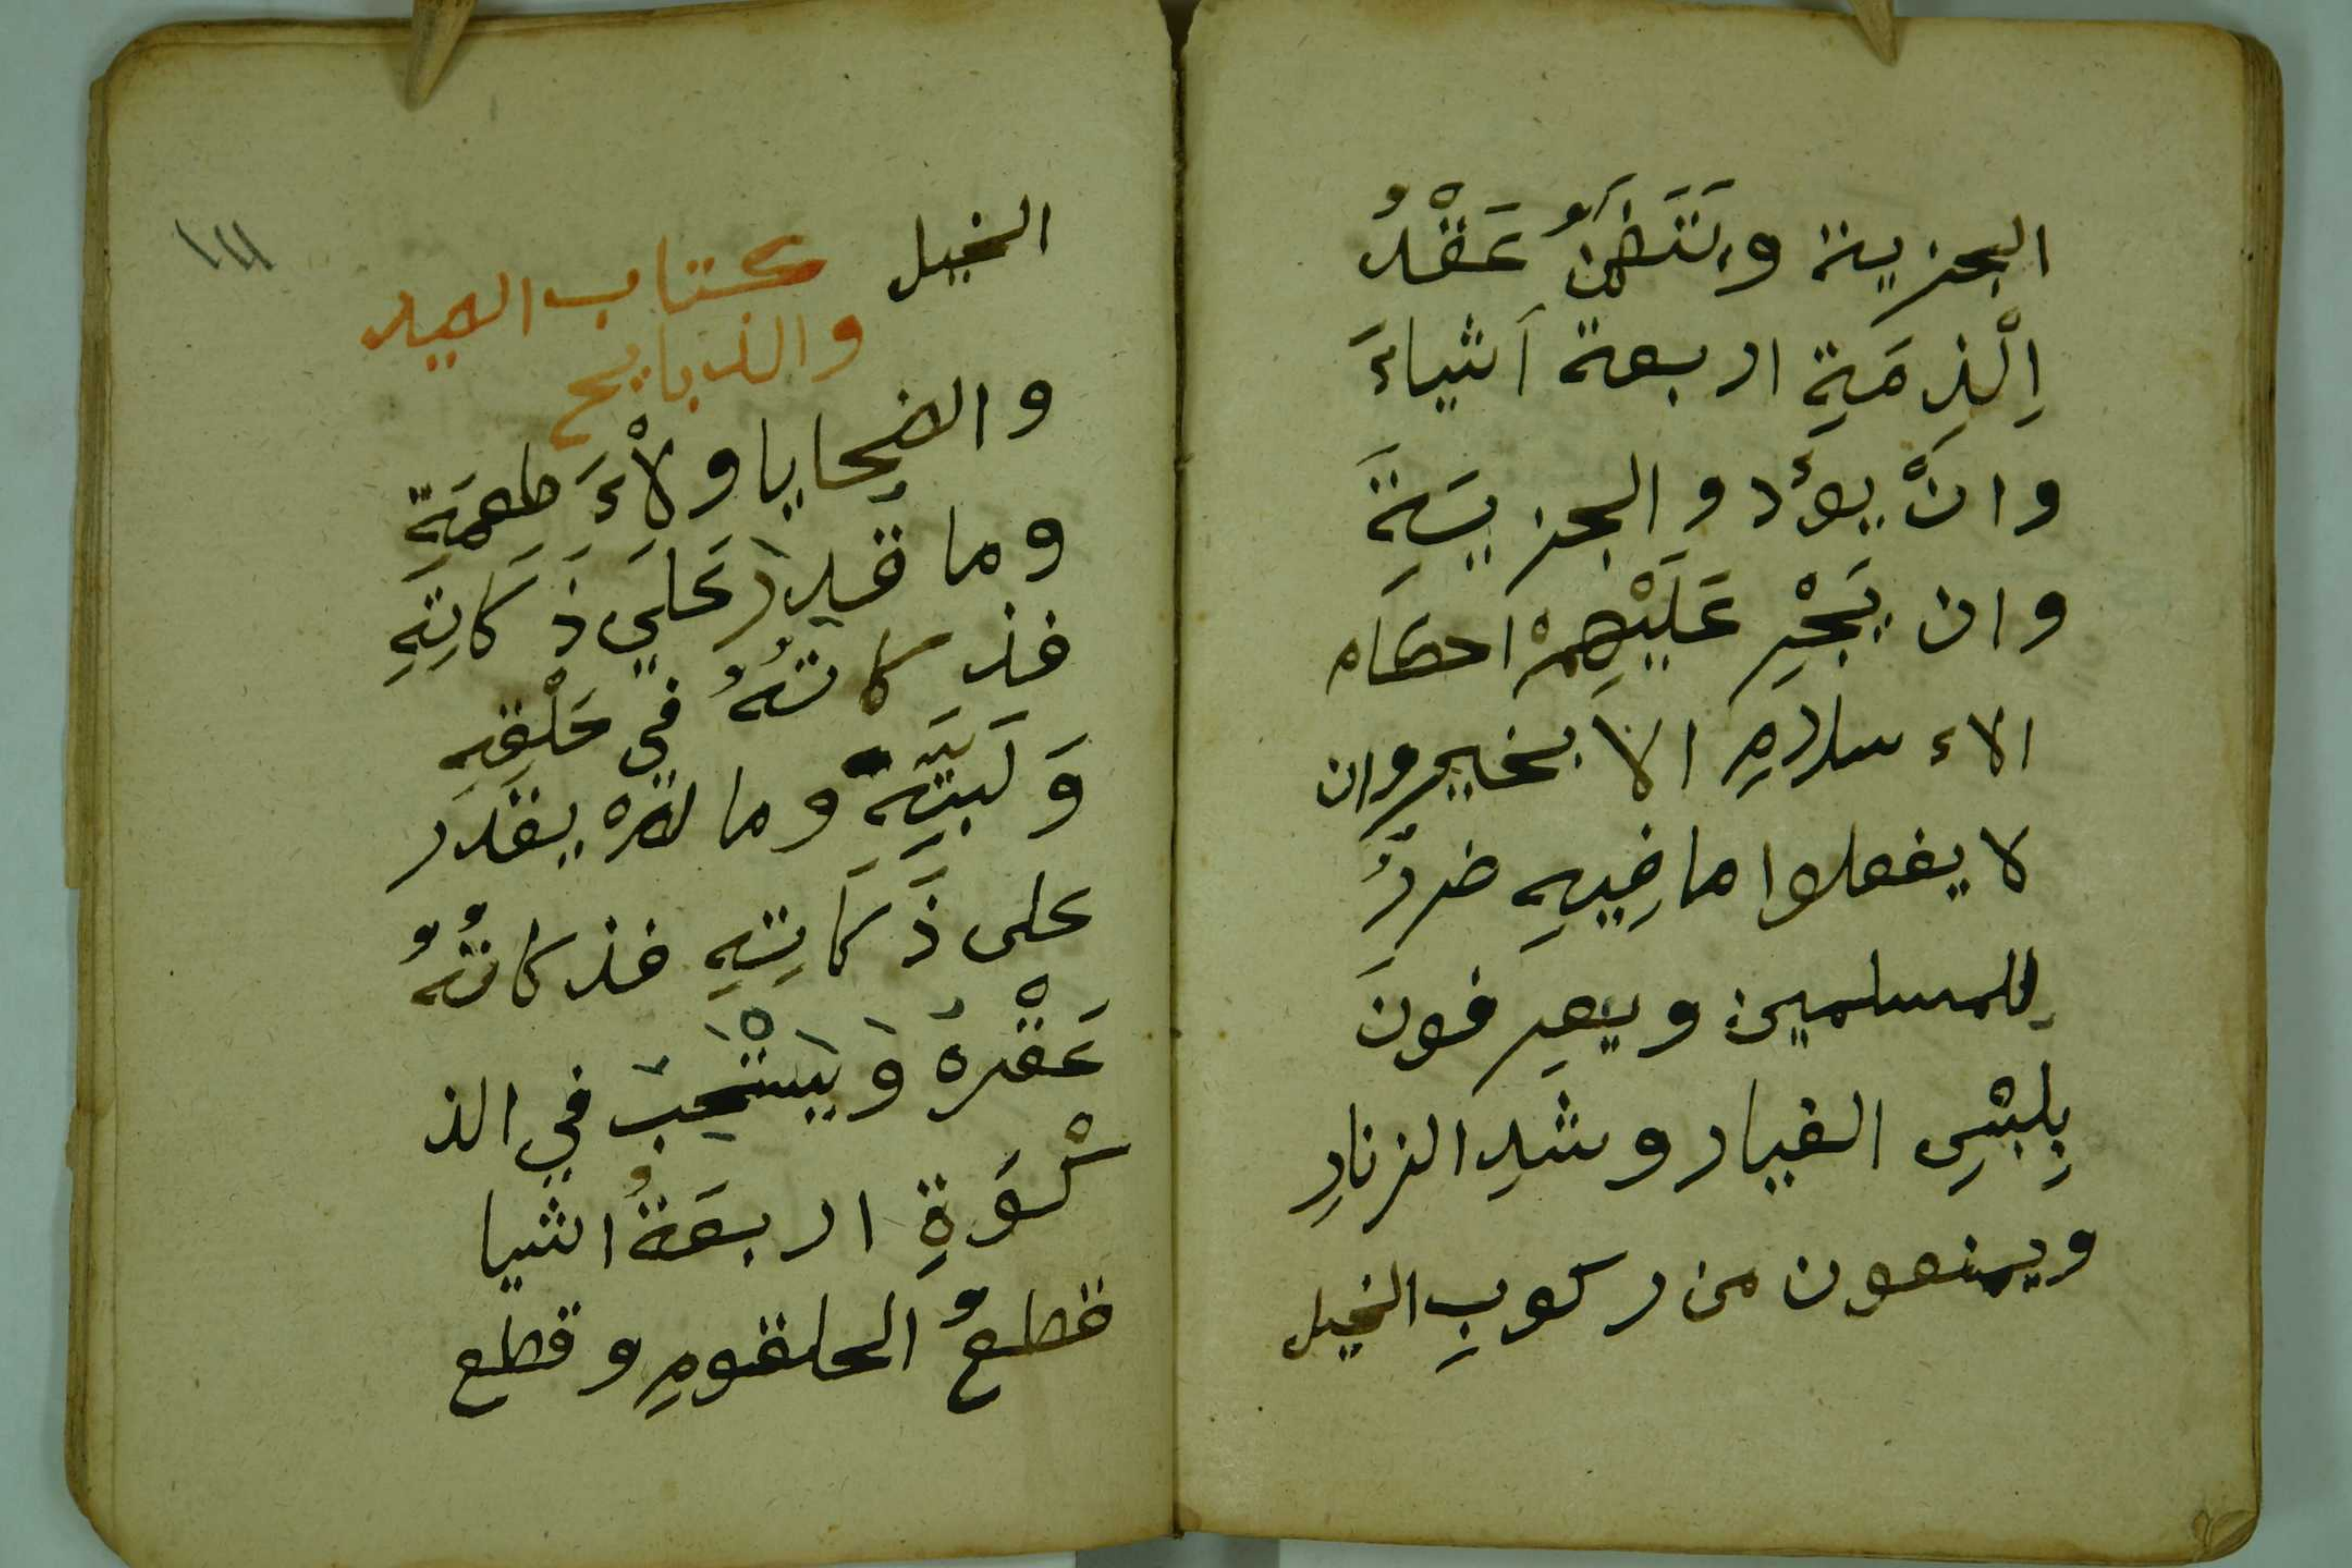 الجزية ويتضمنُ عَقْدُ
اِلْذِمَةِ اربعة اَشياءَ
وانْ يؤدو الجزيَةِ
وان يَجْرِ عَلَيْهِمْ احكام
الاء سلامِ الا بخير وان
لا يفعلوا ما فِيهِ ضررُ
لِلمسلمين ويعرِفونَ
بِلِبْسِ الغيار وشدِ الزنارِ
ويمنعون من ركوبِ الخيل
الخيل كتاب الصيد
والذبايح
والضحايا ولاْءَطعِمَةِ
وما قُدِرَ عَلَي ذَكَاتِهِ
فذكاتهُ في حَلْقِهِ
وَلَبَتِهِ وما لمْ يقدَر
على ذَكَاتِهِ فذكاتُهُ
عَقْرهُ وَيَسْتَحِبُ في الذ
كْوَةِ اربعَةُ اشيا
قطعُ الحلقومِ وقطع